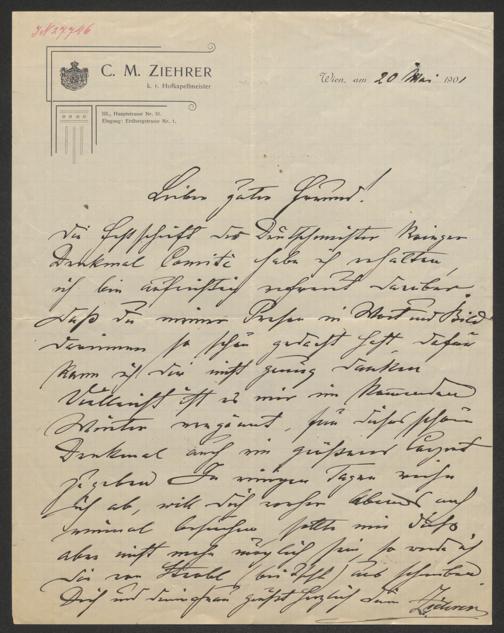 JN 27746
C. M. ZIEHRER
k. k. Hofkapellmeister
III., Hauptstrasse Nr.
Eingang: Erdbergstrasse Nr. 1.
Wien, am 20 Mai 1901
Lieber guter Freund!
Die Festschrift des Deutschmeister
Denkmal Comité habe ich erhalten,
ich bin aufrichtig erfreut darüber
daß du meiner Person in Wort und Bild
darinnen so schön gedacht hast, dafür
kann ich dir nicht genug danken
Vielleicht ist es mir im kommenden
Winter vergönnt, für dieses schöne
Denkmal auch ein größeres Concert
zu geben In einigen Tagen reise
ich ab, will dich vorher Abends noch
einmal besuchen sollte mir dies
aber nicht mehr möglich sein so werde ich
dir von Strobl (bei Ischl) aus schreiben
Dich und deine Frau grüßt herzlich dein Ziehrer